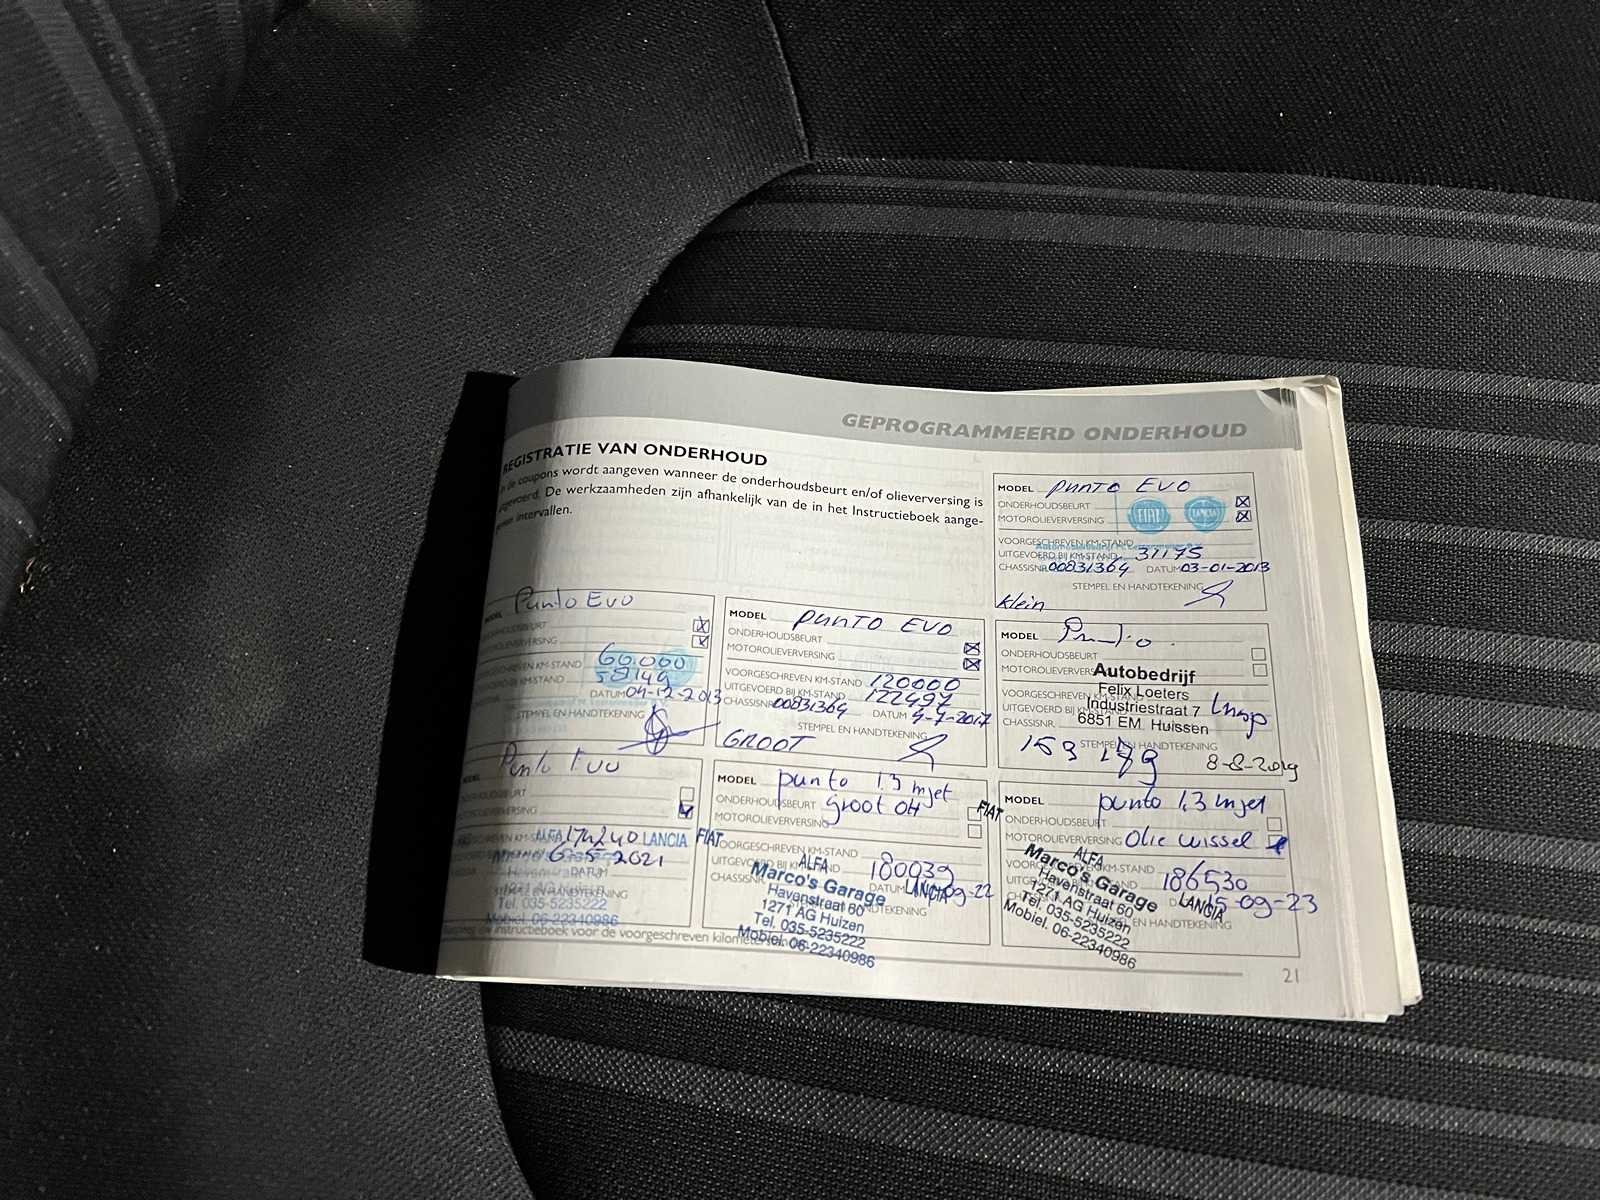 GEPROGRAMMEERD ONDERHOUD
REGISTRATIE VAN ONDERHOUD
de coupons wordt aangeven wanneer de onderhoudsbeurt en/of olieverversing is
De werkzaamheden zijn afhankelijk van de in het Instructieboek aange-
intervallen.
MODEL Punto EVO
ONDERHOUDSBEURT
MOTOROLIEVERVERSING
FIAT
LANCIA
VOORGESCHREVEN KM-STAND
UITGEVOERD BIJ KM-STAND 31175
CHASSISNR. 00831364 DATUM 03-01-2013
STEMPEL EN HANDTEKENING
Klein
Punto Evo
KM-STAND 60.000
KM-STAND 58149
DATUM 04-12-2013
STEMPEL EN HANDTEKENING
MODEL Punto EVO
ONDERHOUDSBEURT
MOTOROLIEVERVERSING
VOORGESCHREVEN KM-STAND 120000
UITGEVOERD BIJ KM-STAND 122497
CHASSISNR. 00831364 DATUM 4-7-2017
STEMPEL EN HANDTEKENING
GROOT
MODEL Punto
ONDERHOUDSBEURT
Autobedrijf
Felix Loeters
Industriestraat 7
6851 EM Huissen
CHASSISNR.
8-8-2019
Punto Evo
ALFA 174240 LANCIA FIAT
6-5-2021
DATUM
Tel. 035-5235222
Mobiel. 06-22340986
instructieboek voor de voorgeschreven
MODEL punto 1.3 mjet
ONDERHOUDSBEURT groot OH
MOTOROLIEVERVERSING
FIAT
VOORGESCHREVEN KM-STAND
UITGEVOERD BIJ KM-STAND 180039
ALFA
LANCIA
09-22
Marco's Garage
Havenstraat 60
1271 AG Huizen
Tel. 035-5235222
Mobiel. 06-22340986
MODEL punto 1,3 mjet
ONDERHOUDSBEURT
MOTOROLIEVERVERSING Olie wissel
KM-STAND 186530
ALFA
LANCIA
15-09-23
Marco's Garage
Havenstraat 60
1271 AG Huizen
Tel. 035-5235222
Mobiel. 06-22340986
21